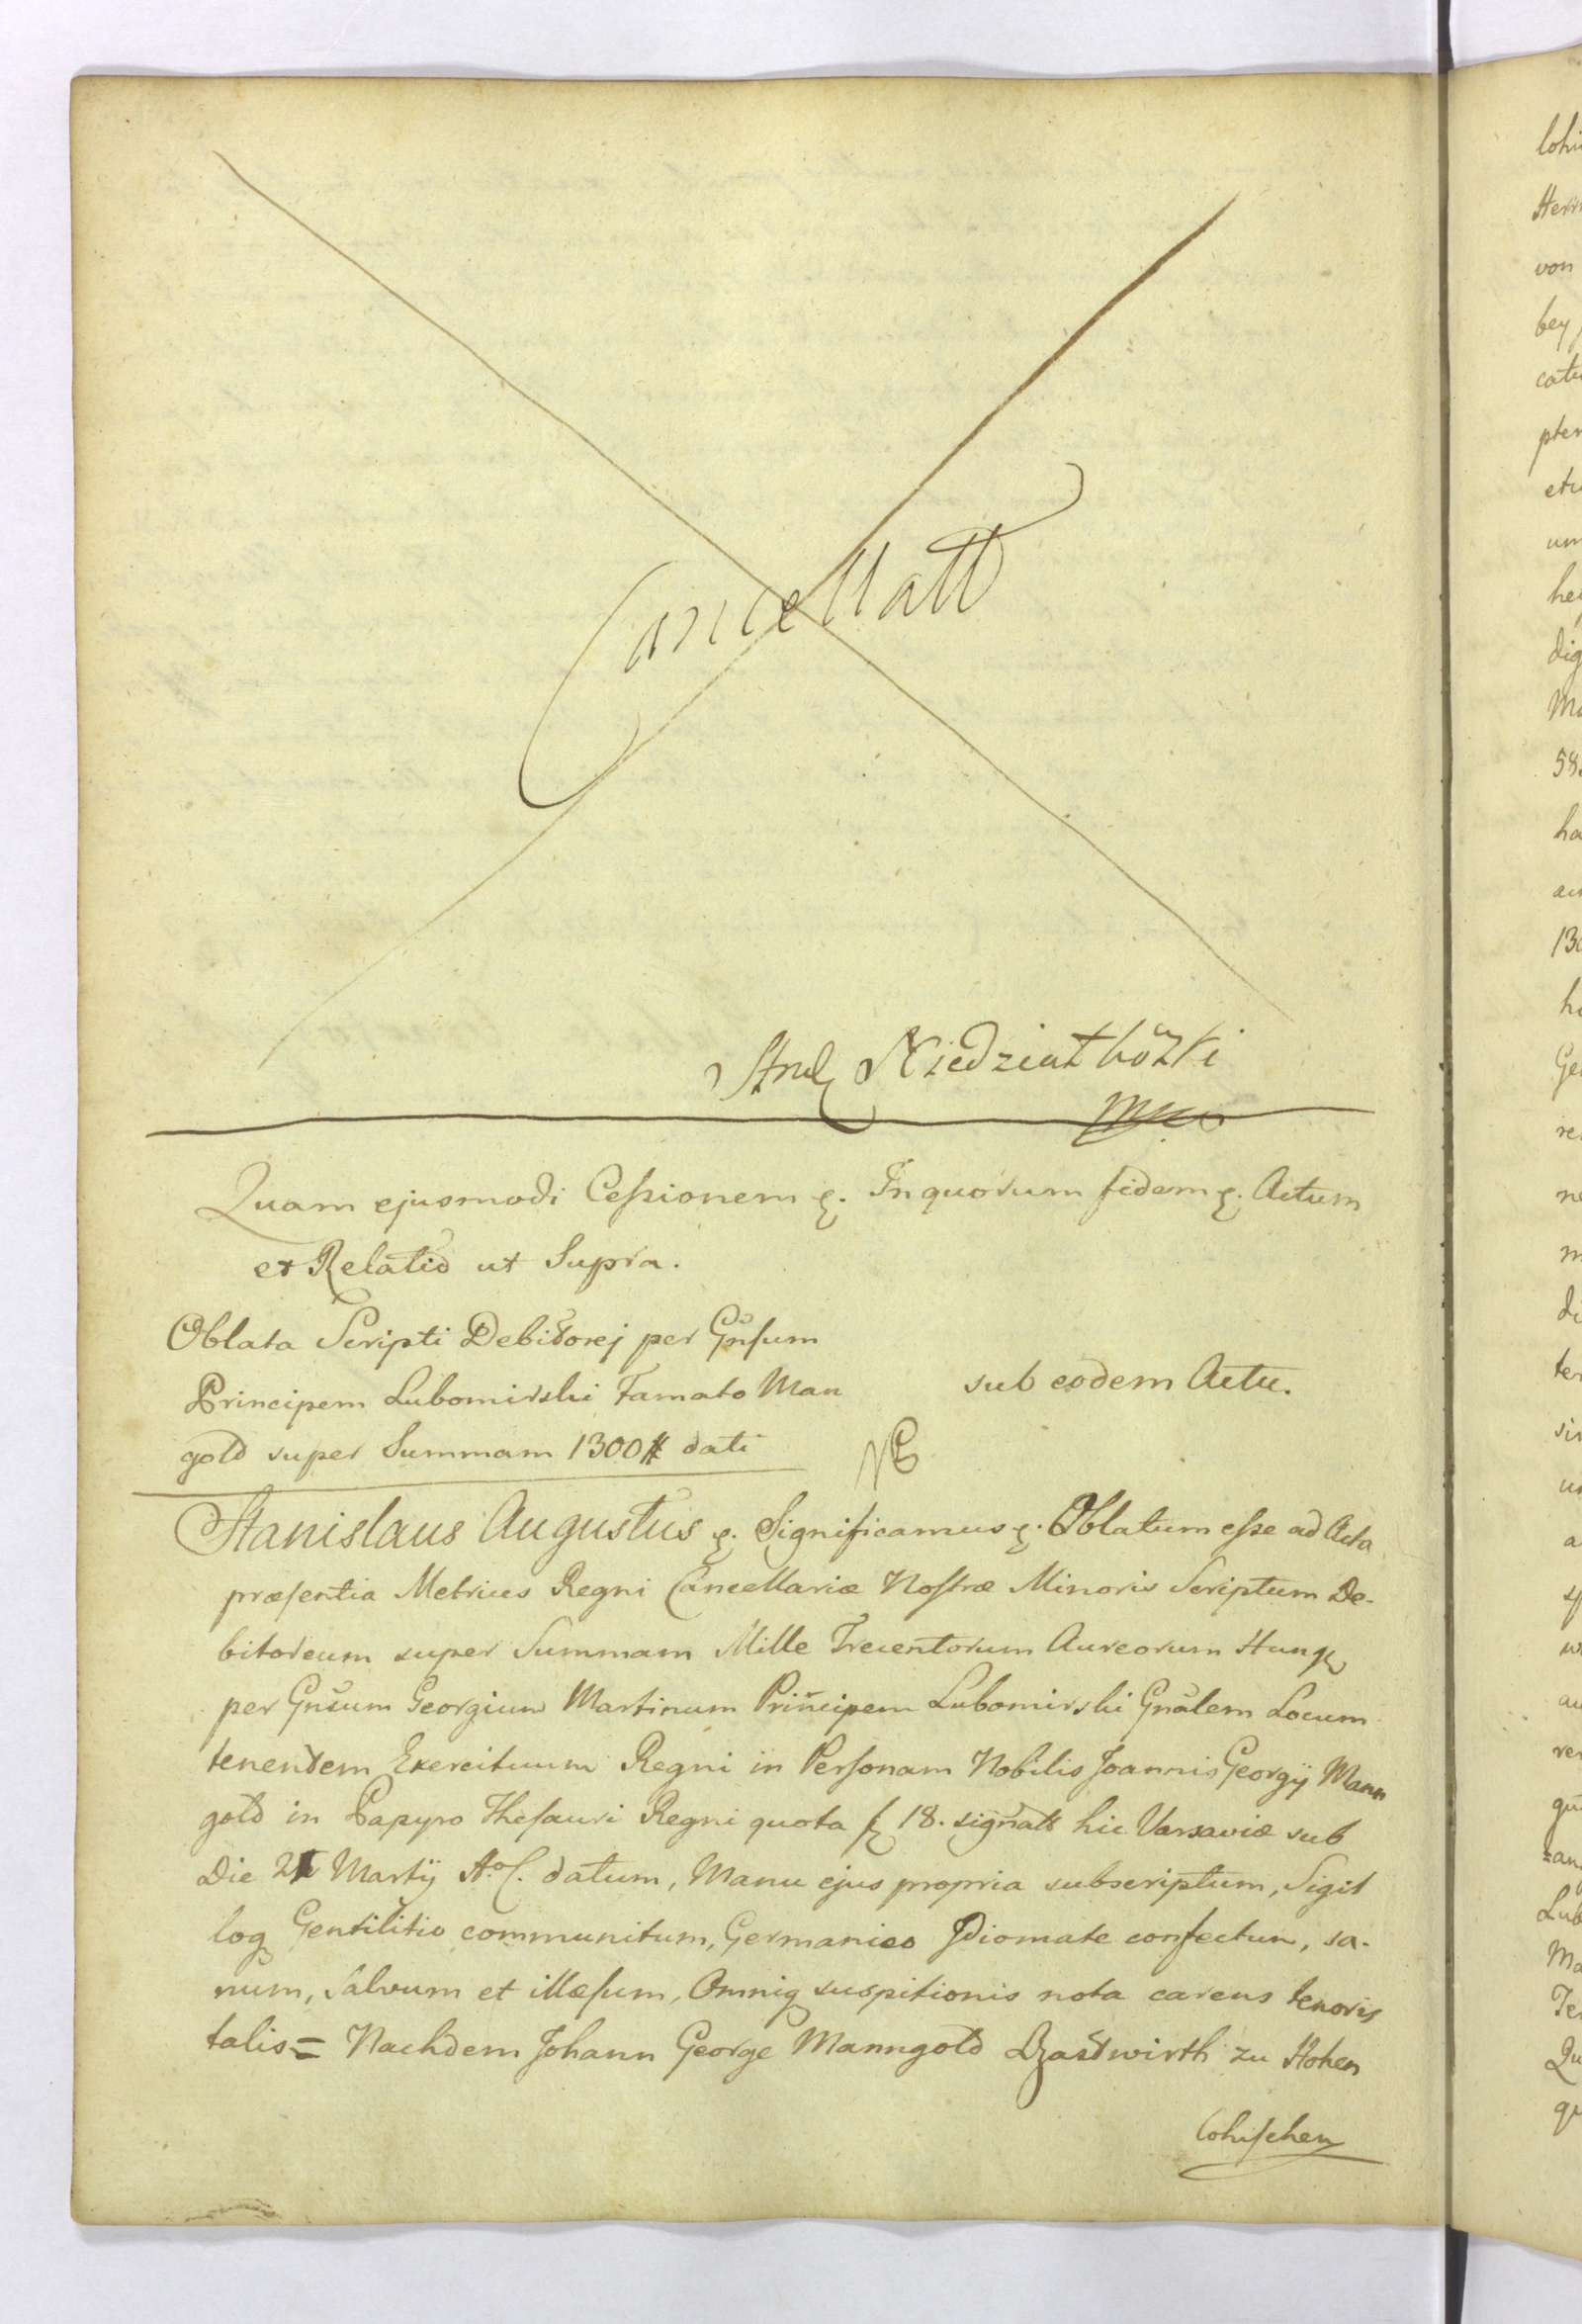 Cancellatt
Niedziałkowski
mpp
Quam ejusmodi Cessionem &. In quorum fidem &. Actum
et Relatio ut Supra.
Oblata Scripti Debitorej per Gnsum
Principem Lubomirski Famato Man
gold super Summam 1300# dati
sub eodem Actu.
Stanislaus Augustus &. Significamus &. Oblatum esse ad Acta
præsentia Metrices Regni Cancellariæ Nostræ Minoris Scriptum De-
bitoreum super Summam Mille Trecentorum Aureorum Hung
per Gnsum Georgium Martinum Principem Lubomirski Gnalem Locum
tenentem Exercituum Regni in Personam Nobilis Joannis Georgij Mann
gold in Papyro Thesauri Regni quota f 18. signatt hic Varsaviæ sub
Die 21 Martij A.C. datum, Manu ejus propria subscriptum, Sigil
loq Gentilitio communitum, Germanico Idiomate confectum, sa-
num, salvum et illæsum, Omniq suspitionis nota carens tenoris
talis = Nachdem Johann George Manngold Gastwirth zu Hohen
lohischen